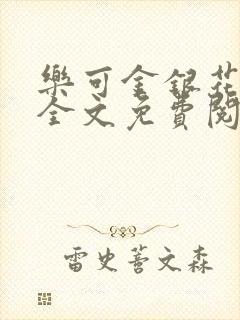 樂可金銀花
全文免費閱
雷史萻文森